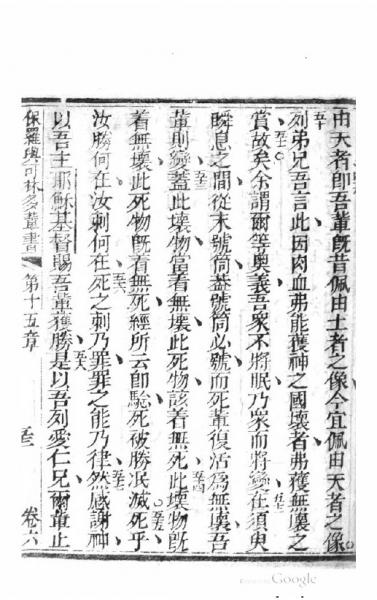 由天者卽吾輩旣昔佩由土者之像今宜佩由天者之像
五十列弟兄吾言此因肉血弗能獲神之國壞者弗獲無壞之
賞故矣五十一余謂爾等奧義吾眾不將眠乃眾而將變五十二在須臾
瞬息之間從末號筒葢號筒必號而死輩復活爲無壞吾
輩則變五十三葢此壞物當着無壞此死物該着無死五十四此壞物旣
着無壞此死物旣着無死經所云卽驗死被勝泯滅五十五死乎
汝勝何在汝刺何在五十六死之刺乃罪罪之能乃律五十七然感謝神
以吾主耶穌基督賜吾輩獲勝五十八是以吾列愛仁兄爾輩止
保羅與可林多輩書 第十五章 卷六
Google